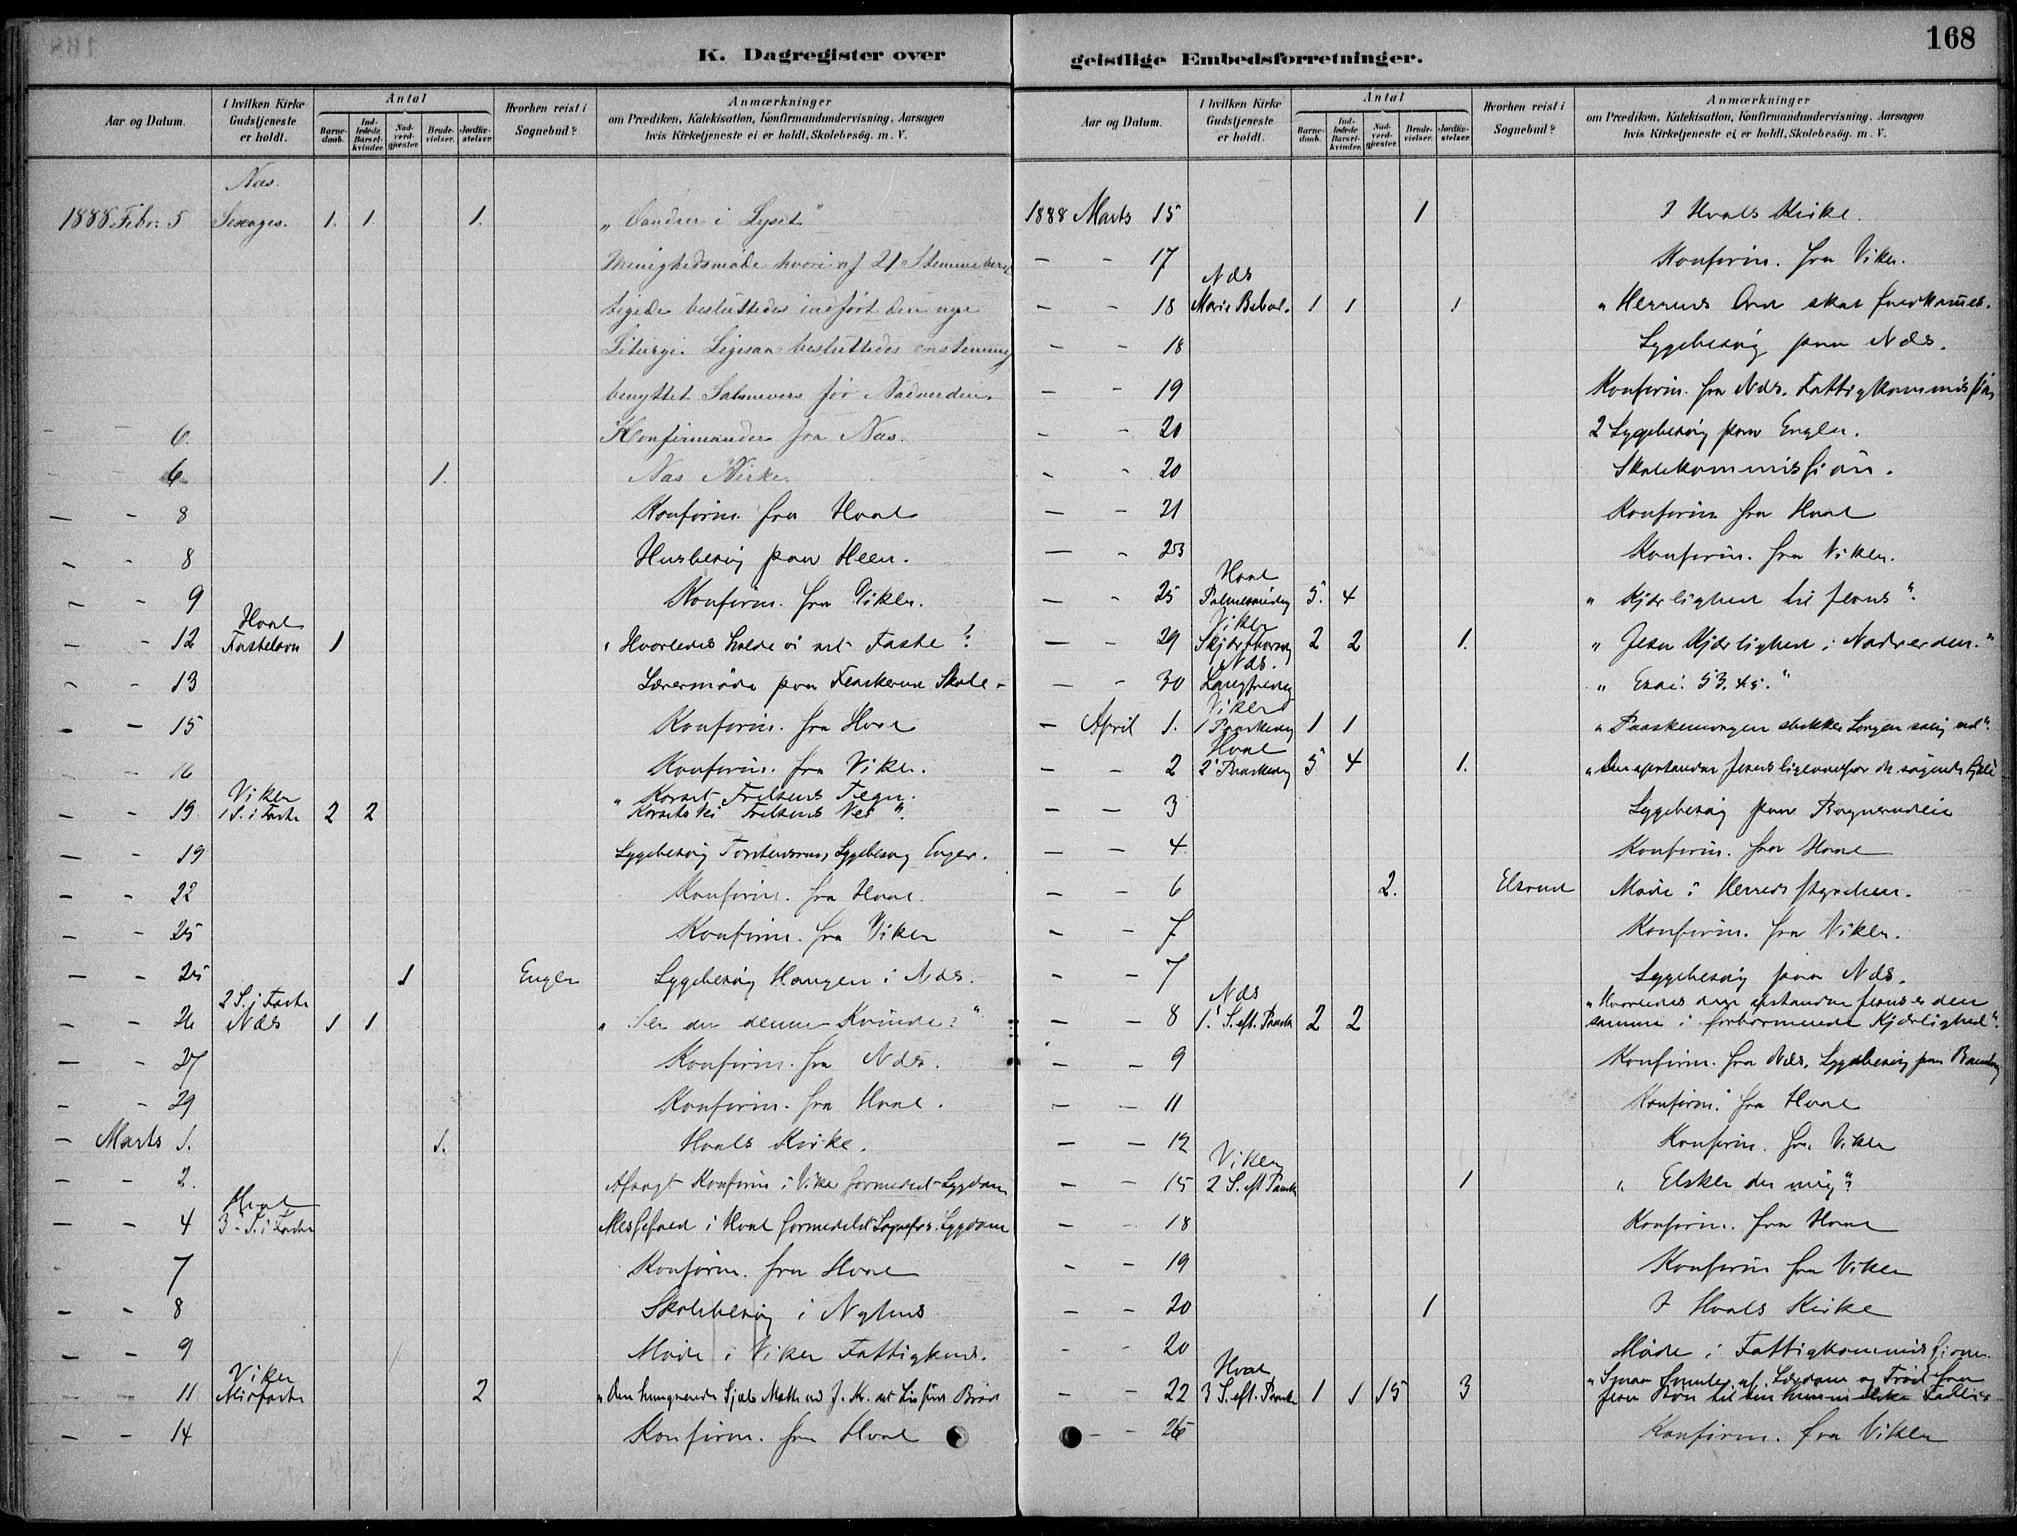 168
K. Dagregister over
geistlige Embedsforretninger.
Aar og Datum.
I hvilken Kirke Gudstjeneste er holdt.
Antal
Barne-daab.
Ind-ledede Barsel-kvinder.
Nad-verd-gjæster.
Brude-vielser.
Jordfæ-stelser.
Hvorhen reist i Sognebud?
Anmærkninger
om Prædiken, Katekisation, Konfirmandundervisning, Aarsagen
hvis Kirketjeneste ei er holdt, Skolebesög. m. V.
Næs.
1888 Febr: 5 Sexages. 1. 1. 1. „Vandrer i Lyset“
Menighedsmøde hvori af 21 Stemmeberet
tigede besluttedes indført den nye
Liturgi. Ligesaa besluttedes enstemmig
benyttet Salmevers før Nadverden.
— — 6. Konfirmander fra Næs.
— — 6 1. Næs Kirke.
— — 8 Konfirm. fra Hval
— — 8 Husbesøg paa Heen.
— — 9 Konfirm. fra Viker.
Hval
— — 12 Fastelavn 1 „Hvorledes holde vi ret Faste?
— — 13 Lærermøde paa Flaskerud Skole
— — 15 Konfirm. fra Hval
— — 16 Konfirm. fra Viker.
Viker
— — 19 1 S. i Faste 2 2 „Korset Frelsens Tegn.
Korsets Vei Frelsens Vei“.
— — 19 Sygebesøg Sygebesøg Enger.
— — 22 Konfirm. fra Hval.
— — 25 Konfirm. fra Viker
— — 25 1 Enger Sygebesøg Haugen i Næs.
2 S. i Faste
— — 26 Næs 1 1 „Ser du denne Kvinde?“
— — 27 Konfirm. fra Næs.
— — 29 Konfirm. fra Hval.
— Marts 1. 1. Hvals Kirke.
— — 2. Afsagt Konfirm i Viker formedelst Sygdom
Hval
— — 4 3. S. i Faste Messefald i Hval formedelst Sognepr. Sygdom
— 7 Konfirm. fra Hval
— — 8 Skolebesøg i Nyhus
— — 9 Møde i Viker Fattigkms.
Viker
— — 11 Midfaste 2 „Den hungrende Sjæls
— — 14 Konfirm. fra Hval
Aar og Datum.
I hvilken Kirke Gudstjeneste er holdt.
Antal
Barne-daab.
Ind-ledede Barsel-kvinder.
Nad-verd-gjæster.
Brude-vielser.
Jordfæ-stelser.
Hvorhen reist i Sognebud?
Anmærkninger
om Prædiken, Katekisation, Konfirmandundervisning, Aarsagen
hvis Kirketjeneste ei er holdt, Skolebesög. m. V.
1888 Marts 15 1 I Hvals Kirke.
— — 17 Konfirm. fra Viker.
Næs
— — 18 Marie Bebud. 1 1 1 „Herrens Ord skal
— — 18 Sygebesøg paa Næs.
— — 19 Konfirm. fra Næs. Fattigkommission
— — 20 2 Sygebesøg paa Enger.
— — 20 Skolekommission.
— — 21 Konfirm fra Hval
— — 23 Konfirm. fra Viker.
Hval
— — 25 Palmesøndag 5. 4 „Kjærlighed til Jesus“.
Viker
— — 29 Skjærthorsdg 2 2 1. „Jesu Kjærlighed i Nadverden.“
Næs.
— — 30 Langfredag „Esai. 53. 4.5.“
Viker
— April 1. 1 Paaskedag 1 1 „Paaskemorgen slukker Sorgen
Hval
— — 2 2 Paaskedag 5 4 1. „Den opstandne Jesus
— — 3 Sygebesøg paa
— — 4. Konfirm. fra Hval
— — 6 2. Elsrud Møde i Herredsstyrelsen.
— — 7 Konfirm. fra Viker.
— — 7 Sygebesøg paa Næs.
Næs „Hvorledes den opstandne Jesus er den
— — 8 1. S. eft. Paaske 2 2 samme i forbarmende Kjærlighed“.
— — 9 Konfirm. fra Næs, Sygebesøg paa
— — 11 Konfirm. fra Hval
— — 12 Konfirm. fra Viker
Viker
— — 15 2 S. eft Paaske 1 „Elsker du mig“?
— — 18 Konfirm. fra Hval
— — 19 Konfirm fra Viker
— — 20 1 I Hvals Kirke
— — 20 Møde i Fattigkommissionen
Hval
— — 22 3 S. eft. Paaske 1 1 15 3
— — 26 Konfirm. fra Viker